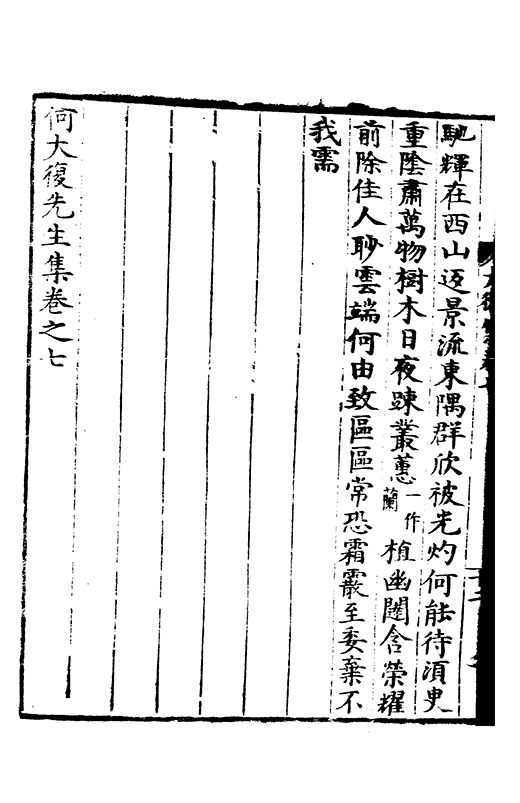 馳輝在西山返景流東隅群欣被光灼何能待須臾
重陰肅萬物樹木日夜踈叢蕙一作蘭植幽闥含榮耀
前除佳人眇雲端何由致區區常恐霜霰至委棄不
我需
何大復先生集卷之七